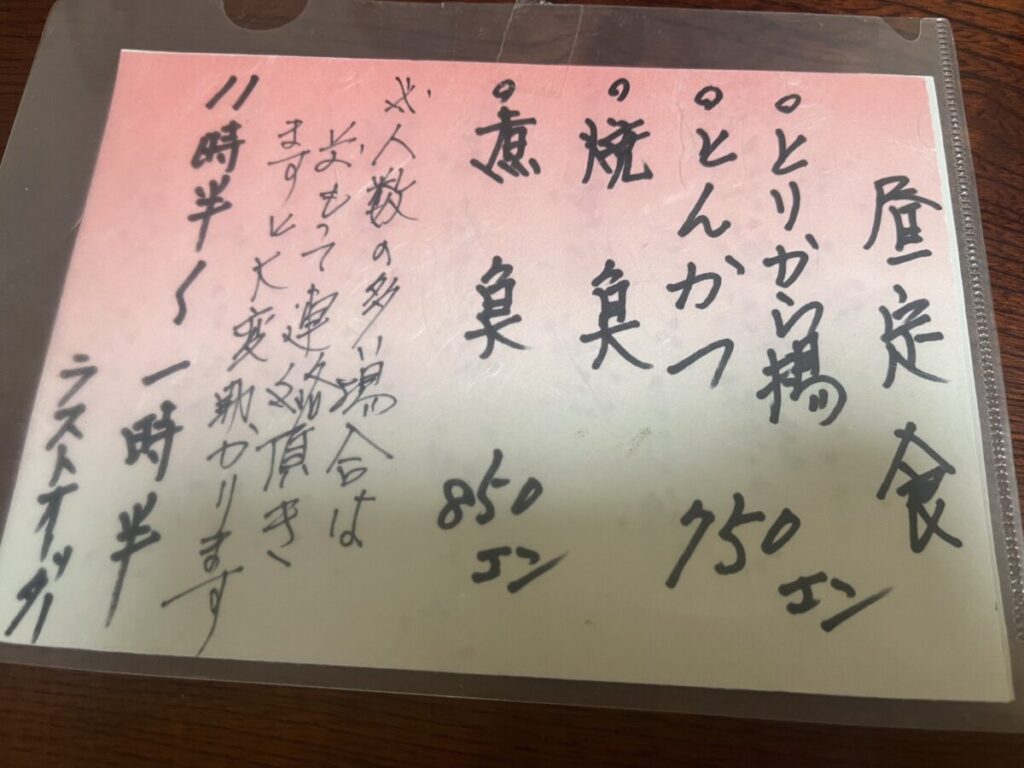 昼定食
○とりから揚
○とんかつ
750エン
○焼魚
○煮魚
850エン
※人数の多い場合は
前もって連絡頂き
ますと大変助かります
11時半〜一時半
ラストオーダー